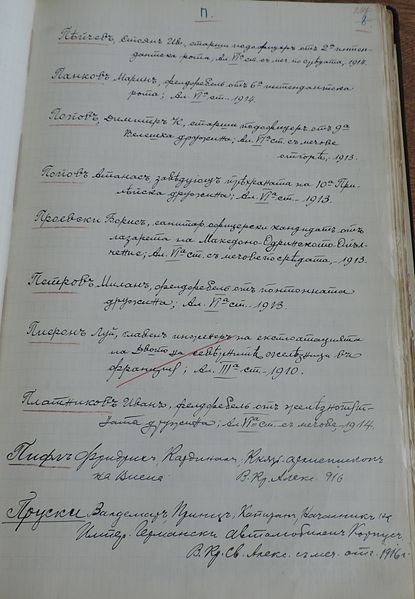 П.
8
Пѣйчевъ, Стоянъ Ив., старши подофицеръ отъ 2ª интен-
дантска рота, Ал. VIª ст. съ меч. по срѣдата, 1914.
Панковъ Маринъ, фелдфебель отъ 6ª интендантска
рота; Ал. VIª ст. - 1914.
Поповъ, Димитръ К., старши подофицеръ отъ 9ª
Велешка дружина; Ал. VIª ст. съ мечове
отгорѣ, 1913.
Поповъ Атанасъ, завѣдующъ прѣхраната на 10ª При-
лѣпска дружина; Ал. VIª ст. - 1913.
Проевски Борисъ, санитар. офицерски кандидатъ отъ
лазарета на Македоно-Одринското Опъл-
чение; Ал. VIª ст. съ мечове по срѣдата, 1913.
Петровъ Миланъ, фелдфебель отъ понтонната
дружина; Ал. VIª ст. - 1913.
Пиеронъ Луй, главенъ инженеръ на експлоатацията
на желѣзници въ
Франция; Ал. IIIª ст. - 1910.
Платниковъ Иванъ, фелдфебель отъ желѣзнопѫт-
ната дружина; Ал. VIª ст. съ мечове - 1914.
Пифлъ Фридрих Кардинал, Князъ-архиепископ
на Виена В. Кр. Алекс. 916
Пруски Валдемаръ Принцъ, Капитан Началникъ на
Импер. Германски Автомобилен Корпус,
В. Кр. Св. Алекс. с меч. отг. 1916 г.